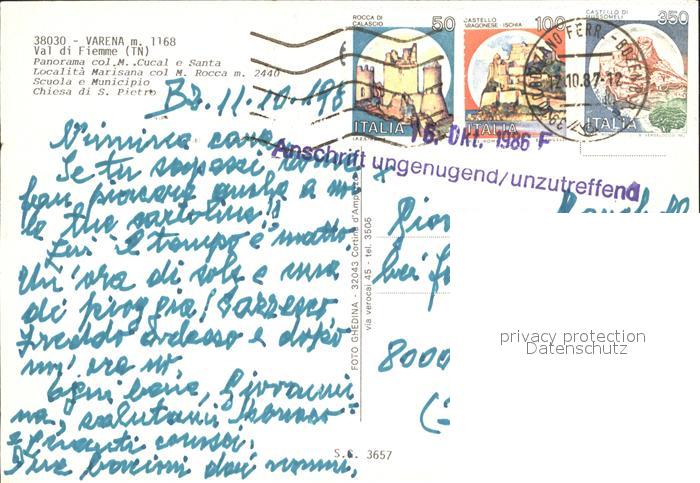 38030 - VARENA m. 1168
Val di Fiemme (TN)
Panorama col.M..Cucal e Santa
Località Marisana col M. Rocca m. 2440
Scuola e Municipio
Chiesa di S. Pietro
ROCCA DI
CALASCIO
50
ITALIA
CASTELLO
ARAGONESE - ISCHIA
100
ITALIA
CASTELLO DI
MUSSOMELI
350
ITALIA
16. Okt. 1986 F
Anschrift ungenugend/unzutreffend
Bz. 11.10.198
Se tu sapessi
piacere anche a noi
le tue cartoline!!
Qui il tempo è matto.
Un'ora di sole e una
di pioggia! Pazzesco
freddo adesso e dopo
un'ora no.
Ogni bene, Giovanni
na, salutami
e
Due bacioni dai nonni,
Giov
bei
8000
FOTO GHEDINA - 32043 Cortina d'Ampezzo
via verocai 45 - tel. 3506
S.C. 3657
privacy protection
Datenschutz